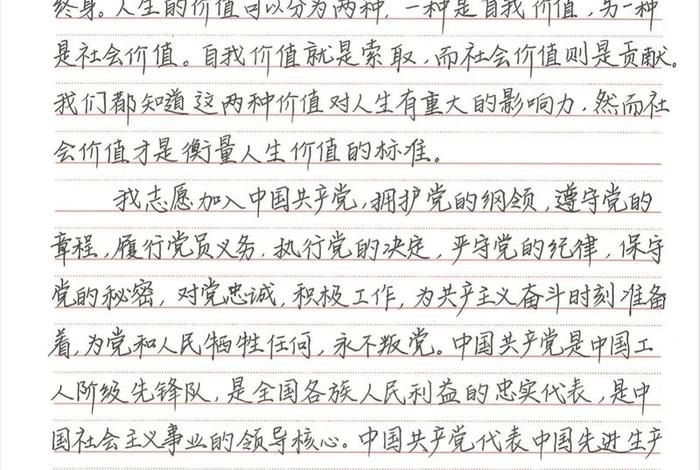 终身。人生的价值可以分为两种,一种是自我价值,另一种
是社会价值。自我价值就是索取,而社会价值则是贡献。
我们都知道这两种价值对人生有重大的影响力,然而社
会价值才是衡量人生价值的标准。
我志愿加入中国共产党,拥护党的纲领,遵守党的
章程,履行党员义务,执行党的决定,严守党的纪律,保守
党的秘密,对党忠诚,积极工作,为共产主义奋斗时刻准备
着,为党和人民牺牲任何,永不叛党。中国共产党是中国工
人阶级先锋队,是全国各族人民利益的忠实代表,是中
国社会主义事业的领导核心。中国共产党代表中国先进生产